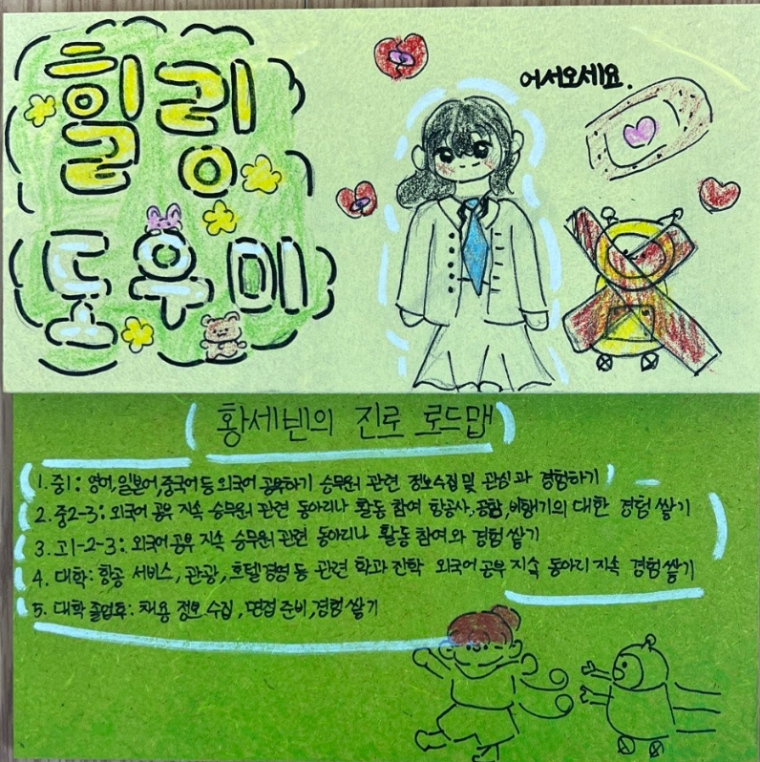 힐링
도우미
어서오세요.
황세빈의 진로 로드맵
1. 중1: 영어,일본어,중국어 등 외국어 공부하기 승무원 관련 정보수집 및 관심과 경험하기
2. 중2-3: 외국어 공부 지속 승무원 관련 동아리나 활동 참여 항공사,공항,비행기의 대한 경험 쌓기
3. 고1-2-3: 외국어 공부 지속 승무원 관련 동아리나 활동 참여와 경험 쌓기
4. 대학: 항공 서비스, 관광, 호텔경영 등 관련 학과 진학 외국어 공부 지속 동아리 지속 경험 쌓기
5. 대학 졸업후: 채용 정보 수집, 면접 준비, 경험 쌓기